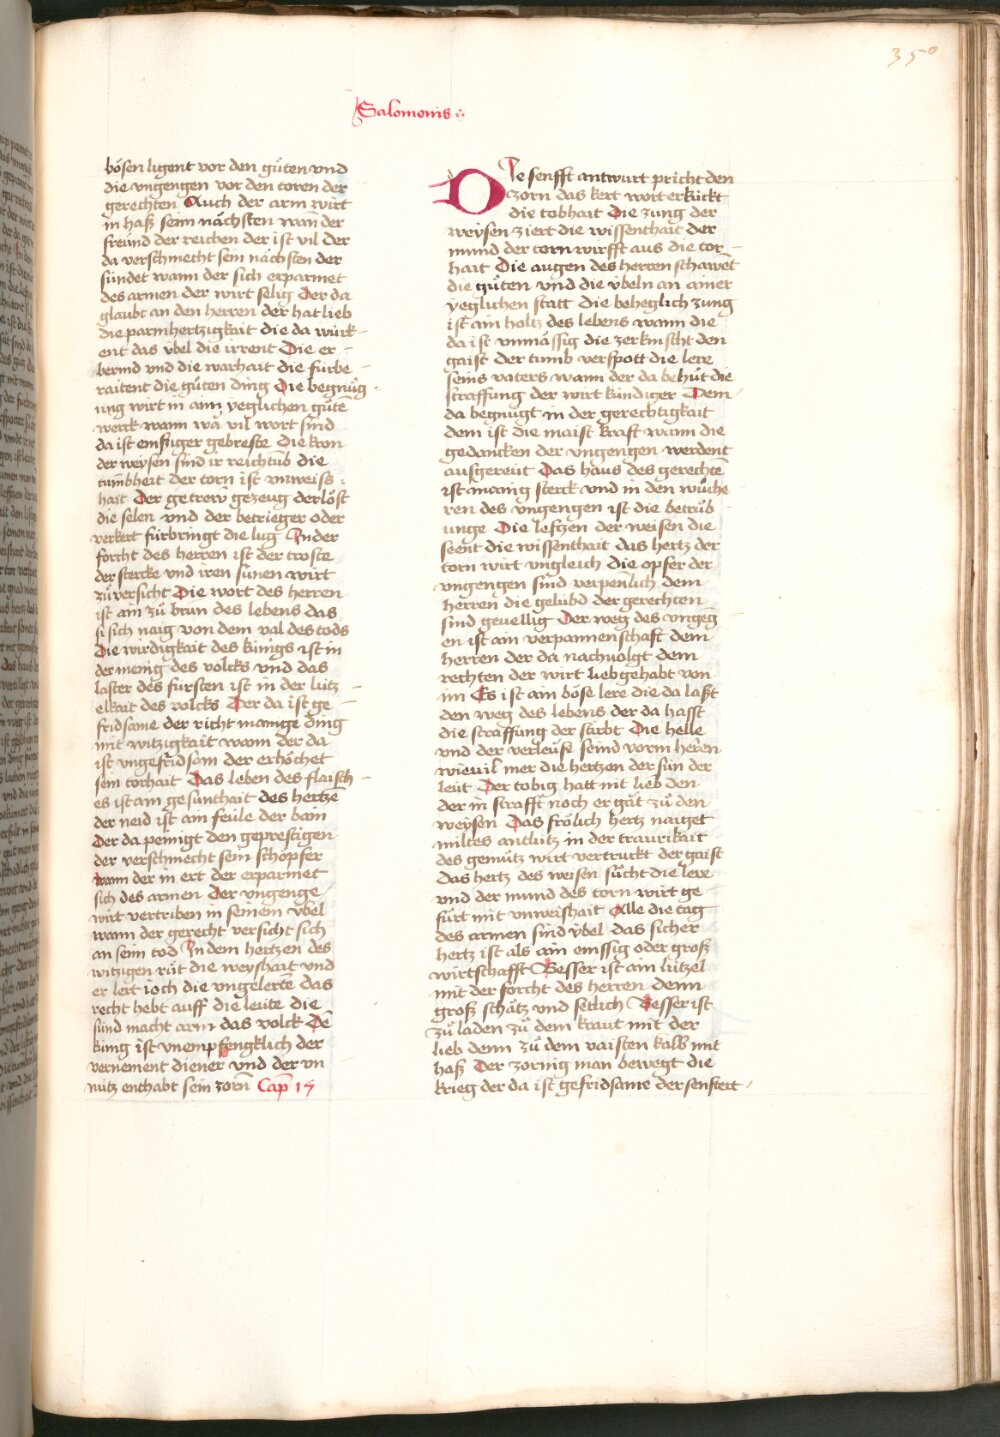 350
Salomonis
bösen ligent vor den gůten vnd
die vngengen vor den toren der
gerechten Auch der arm wirt
in haß seim nächsten wann der
freünd der reichen der ist vil der
da verschmecht sein nächsten der
sündet wann der sich erparmet
des armen der wirt selig Der da
glaubt an den herren der hat lieb
die parmhertzigkait die da würk-
ent das vbel die irrent Die er-
bermd vnd die warhait die fürbe-
raitent die gůten ding Die begnüg-
ung wirt in aim yeglichen gůtē
werck wann wa vil wort sind
da ist emssiger gebreste die kron
der weysen sind ir reichtůb die
tumbheit der torn ist vnweiss-
hait Der getrew gezeug derlöst
die selen vnd der betrieger oder
verkert fürbringt die lug In der
forcht des herren ist der troste
der stercke vnd iren sünen wirt
zůversicht Die wort des herren
ist ain zů brun des lebens das
si sich naig von dem val des tods
Die wirdigkait des künigs ist in
der menig des volcks vnd das
laster des fürsten ist in der lütz-
elkait des volcks Der da ist ge-
fridsame der richt manige ding
mit witzigkait wann der da
ist vngefridsam der erhöchet
sein torhait Das leben des flaisch-
es ist am gesunthait des hertzē
der neid ist ain feüle der bain
Der da peinigt den geprestigen
der verschmecht sein schöpfer
wann der in ert der erparmet
sich des armen Der vngenge
wirt vertriben in seinem vbel
wann der gerecht versicht sich
an seim tod In dem hertzen des
witzigen růt die weyshait vnd
er lert ioch die vngelerte das
recht hebt auff die leute die
sünd macht arm das volck Dē
künig ist vnempfengklich der
vernement diener vnd der vn
nütz enthabt sein zorn Cap 15
Die senfft antwurt pricht den
zorn das hert wort erkückt
die tobhait Die zung der
weysen ziert die wissenthait der
mund der torn wirfft aus die tor-
hait Die augen des herren schawēt
die gůten vnd die vbeln an ainer
yeglichen statt die beheglich zung
ist ain holtz des lebens wann die
da ist vnmässig die zerknischt den
gaist der tumb verspott die lere
seins vaters wann der da behüt die
straffung der wirt kündiger Dem
da begnügt in der gerechtigkait
dem ist die maist kraft wann die
gedancken der vngengen werdent
ausgereüt Das haus des gerechtē
ist manig sterck vnd in den wůche
ren des vngengen ist die betrüb-
unge Die leftzen der weisen die
seent die wissenthait das hertz der
torn wirt vngleich die opfer der
vngengen sind verpenlich dem
herren die gelübd der gerechten
sind geuellig Der weg des vngeng
en ist ain verpannenschaft dem
herren der da nachuolgt dem
rechten der wirt liebgehabt von
im Es ist ain böse lere die da laßt
den weg des lebens der da hasst
die straffung der stirbt Die helle
vnd der verleuse seind vorm herrē
wieuil mer die hertzen der sün der
leüt Der tobig hatt nit lieb den
der in strafft noch er gät zů den
weysen Das frölich hertz naiget
miltes antlütz in der traurikait
des gemütz wirt vertruckt der gaist
das hertz des weisen sůcht die lere
vnd der mund des torn wirt ge
fürt mit vnweishait Alle die tag
des armen sind ybel das sicher
hertz ist als ain emssig oder groß
wirtschafft Besser ist ain lützel
mit der forcht des herren denn
groß schätz vnd setlich Besser ist
zů laden zů dem kraut mit der
lieb denn zů dem vaisten kalb mit
haß Der zornig man bewegt die
krieg der da ist gefridsame der senftert